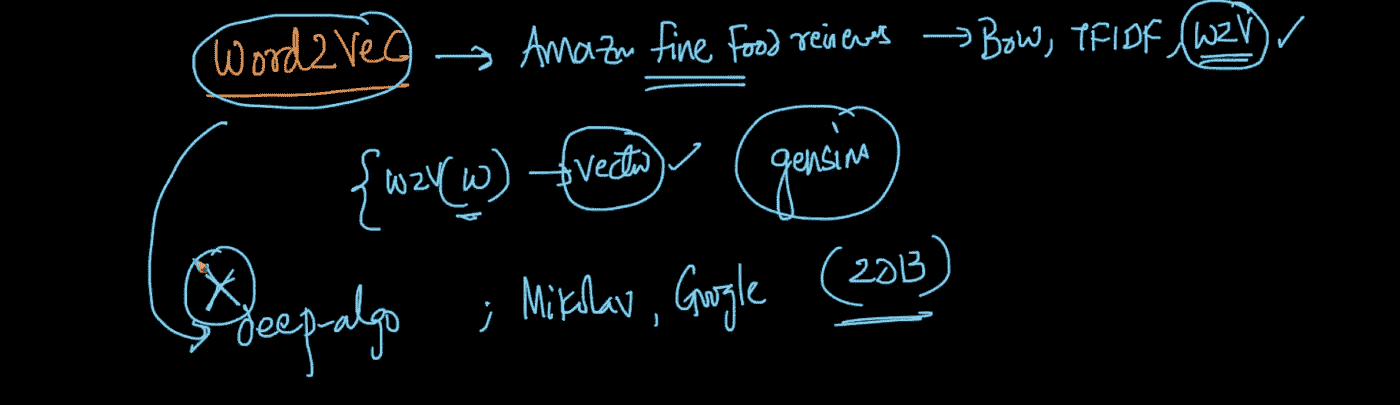 Word2Vec → Amazon fine Food reviews → BOW, TFIDF, W2V ✓
{W2V(W) → vector ✓ gensim
X deep-algo ; Mikolav, Google (2013)